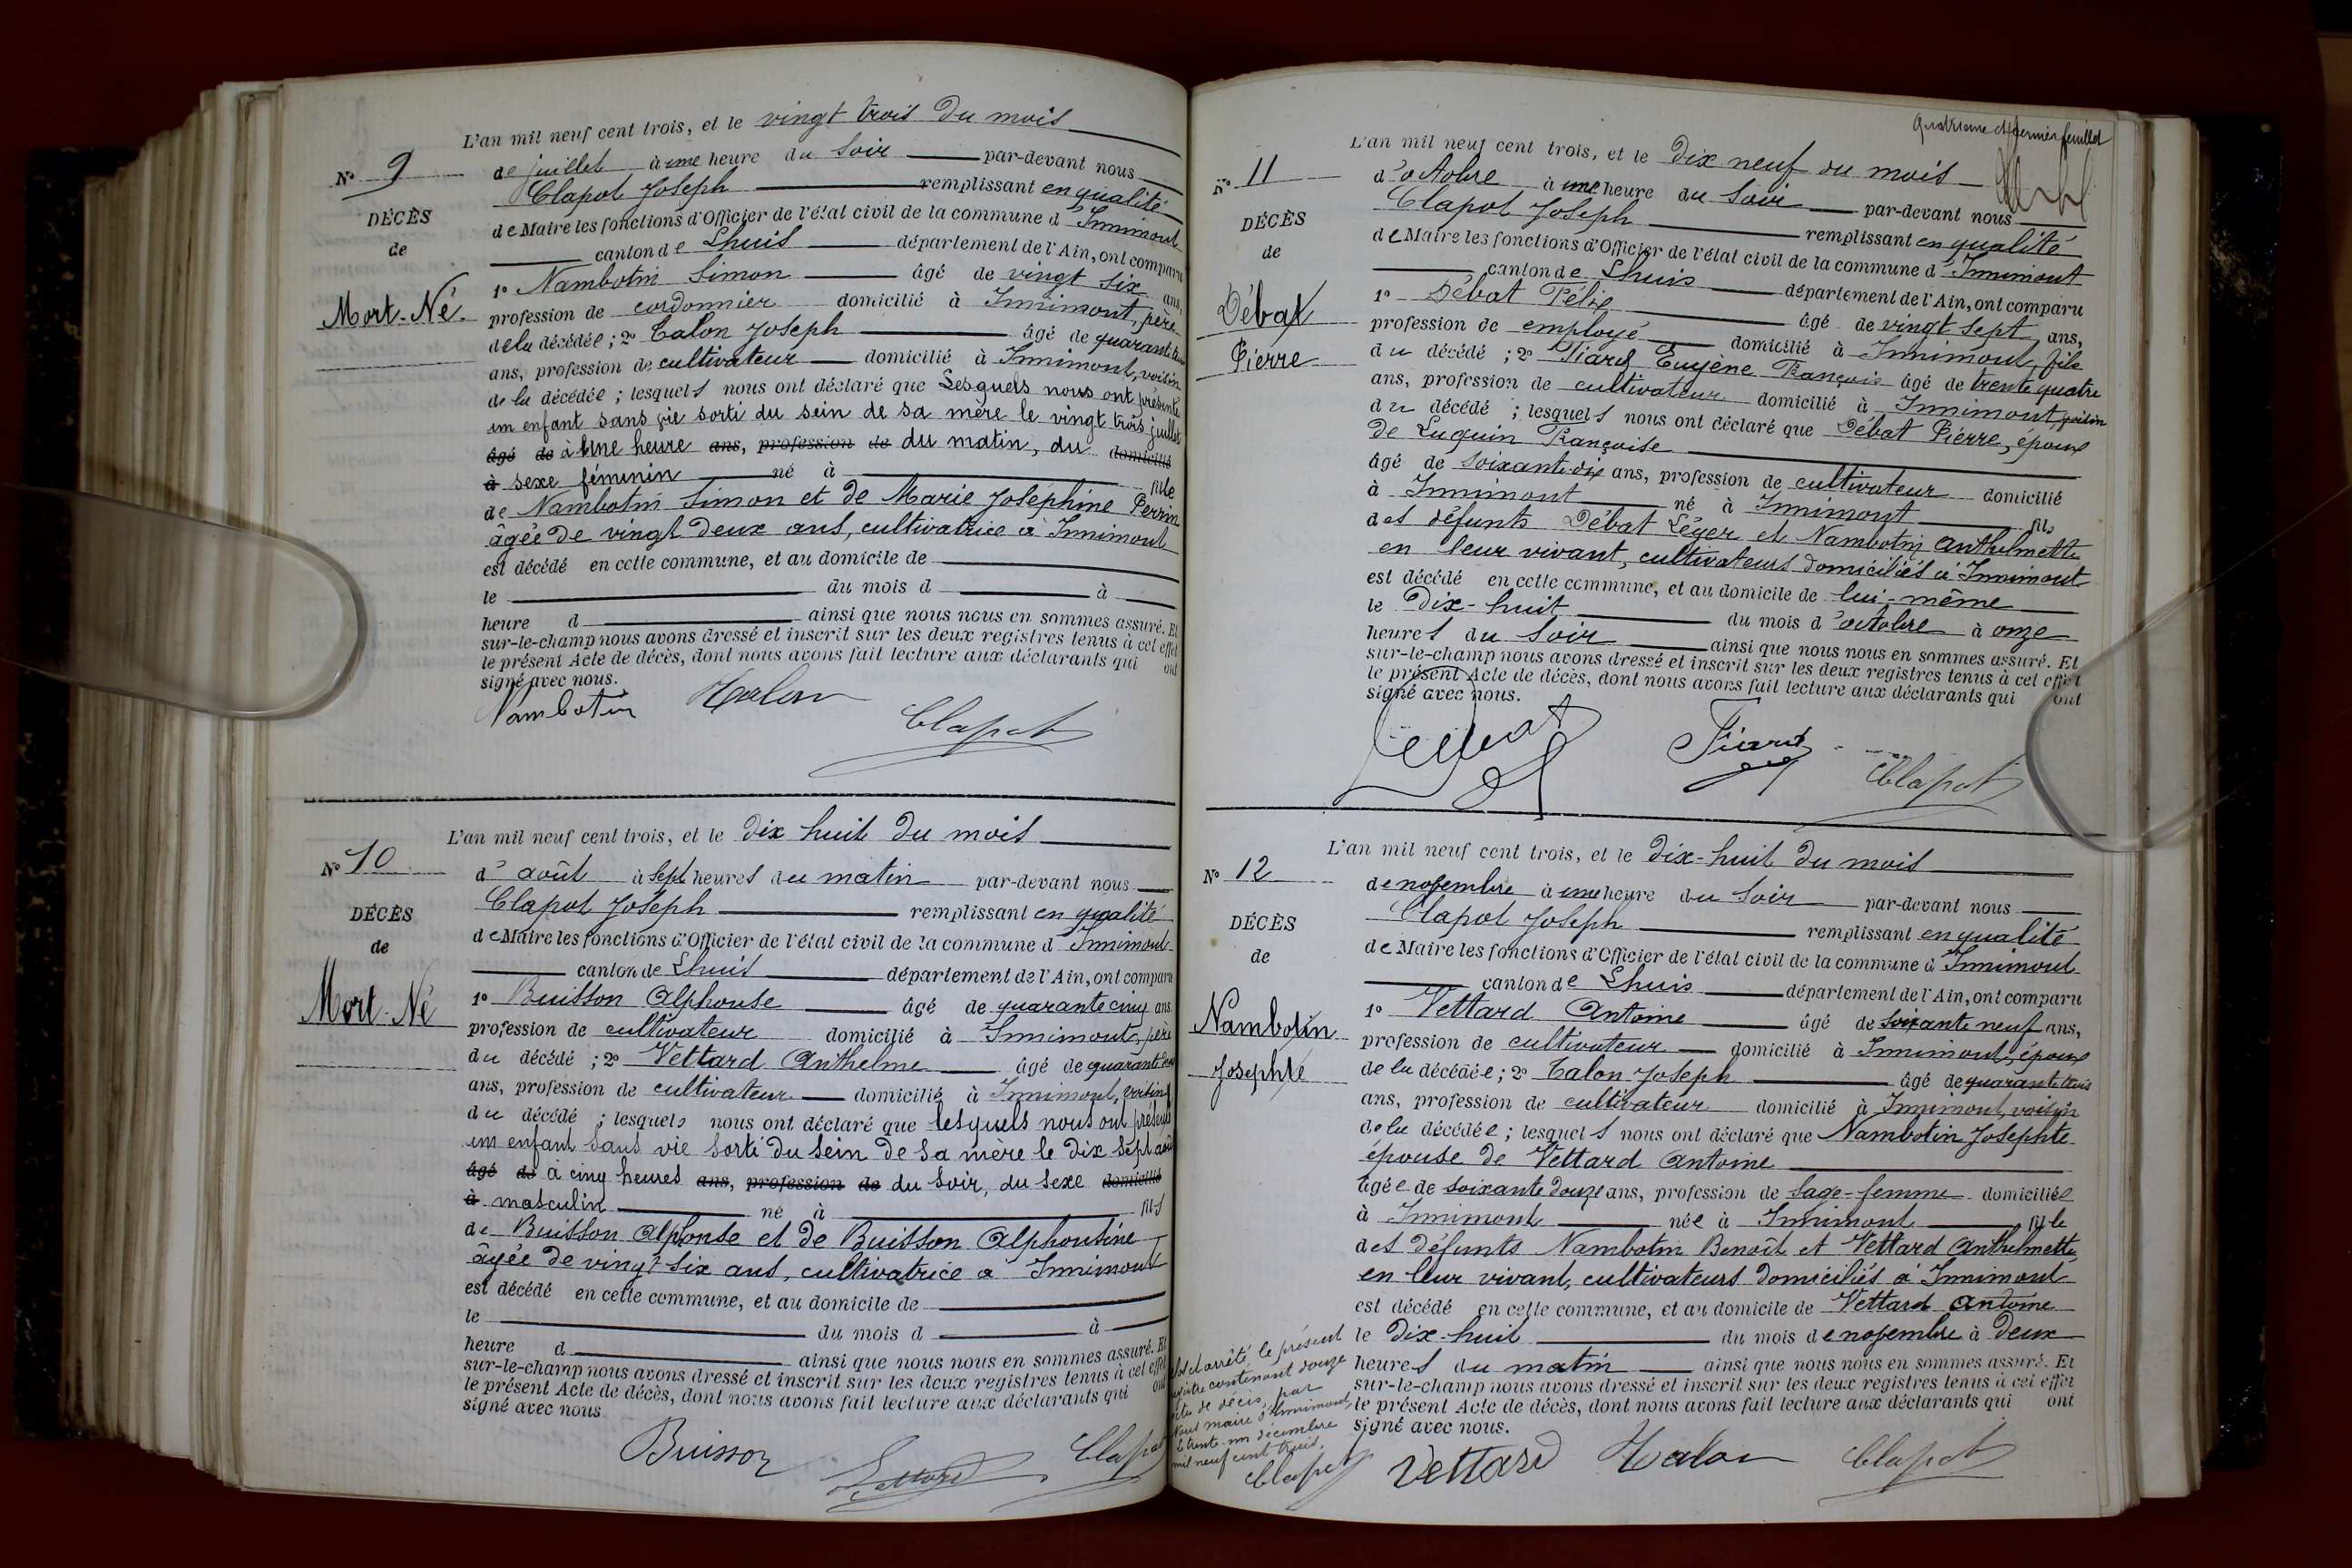 L'an mil neuf cent trois, et le vingt trois du mois
N° 9
de juillet à une heure du soir par-devant nous
Clapot Joseph remplissant en qualité
DÉCÈS
de Maire les fonctions d'Officier de l'état civil de la commune d'Innimont
de
canton de Lhuis département de l'Ain, ont comparu
Mort-Né
1° Nambotin Simon âgé de vingt six ans,
profession de cordonnier domicilié à Innimont, père
de la décédée ; 2° Talon Joseph âgé de quarante
ans, profession de cultivateur domicilié à Innimont, voisin
de la décédée ; lesquels nous ont déclaré que Lesquels nous ont présenté
un enfant sans vie sorti du sein de sa mère le vingt trois juillet
âgé de à Une heure ans, profession de du matin, du domicilié
à sexe féminin né à fille
de Nambotin Simon et de Marie Joséphine Perrin
âgée de vingt deux ans, cultivatrice à Innimont
est décédé en cette commune, et au domicile de
le du mois d à
heure d ainsi que nous nous en sommes assuré. Et
sur-le-champ nous avons dressé et inscrit sur les deux registres tenus à cet effet
le présent Acte de décès, dont nous avons fait lecture aux déclarants qui ont
signé avec nous.
Nambotin Talon Clapot
L'an mil neuf cent trois, et le dix huit du mois
N° 10
d'août à sept heures du matin par-devant nous
Clapot Joseph remplissant en qualité
DÉCÈS
de Maire les fonctions d'Officier de l'état civil de la commune d'Innimont
de
canton de Lhuis département de l'Ain, ont comparu
Mort-Né
1° Buisson Alphonse âgé de quarante cinq ans
profession de cultivateur domicilié à Innimont, père
du décédé ; 2° Vettard Anthelme âgé de quarante
ans, profession de cultivateur domicilié à Innimont, voisin
du décédé ; lesquels nous ont déclaré que lesquels nous ont présenté
un enfant sans vie sorti du sein de sa mère le dix sept août
âgé de à cinq heures ans, profession de du soir, du sexe domicilié
à masculin né à fils
de Buisson Alphonse et de Buisson Alphonsine
âgée de vingt six ans, cultivatrice à Innimont
est décédé en cette commune, et au domicile de
le du mois d à
heure d ainsi que nous nous en sommes assuré. Et
sur-le-champ nous avons dressé et inscrit sur les deux registres tenus à cet effet
le présent Acte de décès, dont nous avons fait lecture aux déclarants qui ont
signé avec nous
Buisson Vettard Clapot
Quatrième et dernier feuillet
L'an mil neuf cent trois, et le dix neuf du mois
N° 11
d'octobre à une heure du soir par-devant nous
Clapot Joseph remplissant en qualité
DÉCÈS
de Maire les fonctions d'Officier de l'état civil de la commune d'Innimont
de
canton de Lhuis département de l'Ain, ont comparu
Débat
1° Débat Félix âgé de vingt sept ans,
Pierre
profession de employé domicilié à Innimont, fils
du décédé ; 2° Tiard Eugène François âgé de trente quatre
ans, profession de cultivateur domicilié à Innimont, voisin
du décédé ; lesquels nous ont déclaré que Débat Pierre, époux
de Luquin Françoise
âgé de soixante-dix ans, profession de cultivateur domicilié
à Innimont né à Innimont fils
des défunts Débat Léger et Nambotin Anthelmette
en leur vivant, cultivateurs domiciliés à Innimont
est décédé en cette commune, et au domicile de lui-même
le Dix-huit du mois d'octobre à onze
heures du soir ainsi que nous nous en sommes assuré. Et
sur-le-champ nous avons dressé et inscrit sur les deux registres tenus à cet effet
le présent Acte de décès, dont nous avons fait lecture aux déclarants qui ont
signé avec nous.
Débat Tiard Clapot
L'an mil neuf cent trois, et le dix-huit du mois
N° 12
de novembre à une heure du soir par-devant nous
Clapot Joseph remplissant en qualité
DÉCÈS
de Maire les fonctions d'Officier de l'état civil de la commune d'Innimont
de
canton de Lhuis département de l'Ain, ont comparu
Nambotin
1° Vettard Antoine âgé de soixante neuf ans,
profession de cultivateur domicilié à Innimont, époux
Josephte
de la décédée ; 2° Talon Joseph âgé de quarante trois
ans, profession de cultivateur domicilié à Innimont, voisin
de la décédée ; lesquels nous ont déclaré que Nambotin Josephte
épouse de Vettard Antoine
âgée de soixante douze ans, profession de sage-femme domiciliée
à Innimont née à Innimont fille
des défunts Nambotin Benoît et Vettard Anthelmette
en leur vivant, cultivateurs domiciliés à Innimont
est décédé en cette commune, et au domicile de Vettard Antoine
le Dix-huit du mois de novembre à Deux
heures du matin ainsi que nous nous en sommes assuré. Et
sur-le-champ nous avons dressé et inscrit sur les deux registres tenus à cet effet
le présent Acte de décès, dont nous avons fait lecture aux déclarants qui ont
signé avec nous.
Vettard Talon Clapot
et arrêté le présent
contenant douze
de décès, par
Nous maire d'Innimont,
le trente-un décembre
mil neuf cent trois.
Clapot